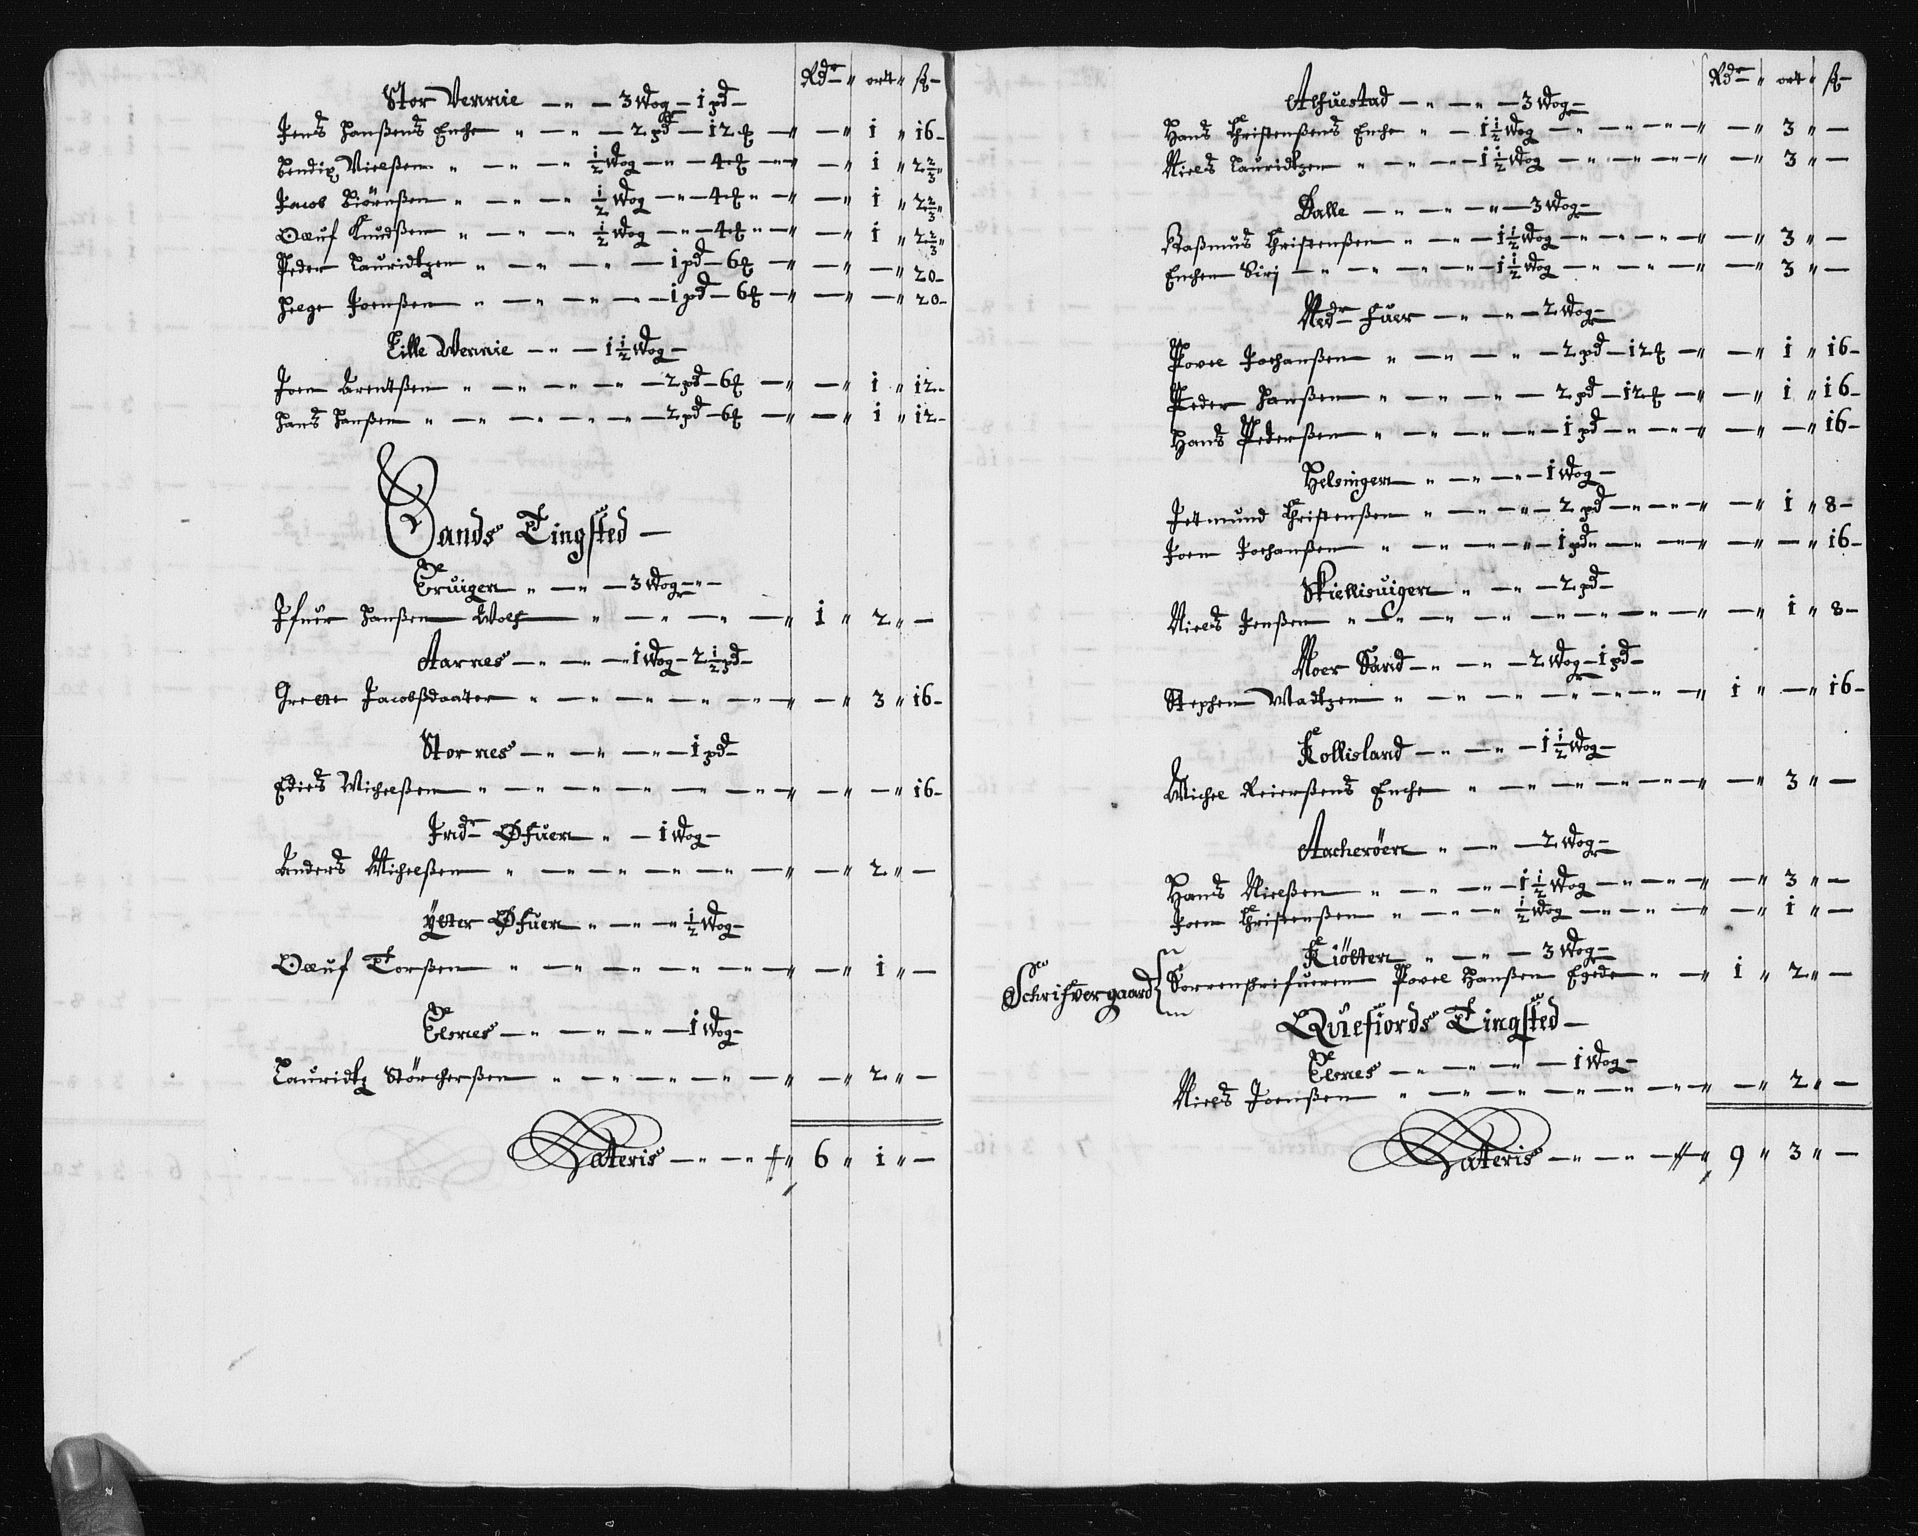 Rdr " ortt " ß –
Stor Vennie – " – 3 Wog – 1 pd –
Jens Hanßens Enche " – " – 2 pd – 12 ℔ – " – " 1 " 16 –
Bendix Nielßen " – " – " ½ Wog – " – 4 ℔ – " – " 1 " 2⅔ "
Jacob Biörnßen " – " – " ½ Wog – " – 4 ℔ – " – " 1 " 2⅔ "
Oluf Knudßen " – " – " ½ Wog – " – 4 ℔ – " – " 1 " 2⅔ "
Peder Lauridtzen " – " – " – 1 pd – 6 ℔ – " – " – " 20 –
Helge Joenßen " – " – " – 1 pd – 6 ℔ – " – " – " 20 –
Lille Vennie – " – 1½ Wog –
Joen Brentßen " – " – " – 2 pd – 6 ℔ – " – " 1 " 12 –
Hans Hanßen " – " – " – 2 pd – 6 ℔ – " – " 1 " 12 –
Sands Tingsted –
Eruigen " – " – 3 Wog – " –
Ifuer Hanßen Wolf " – " – " – " 1 " 2 " –
Aarnes – " – " – 1 Wog – 2½ pd –
Grette Jacobßdaater " – " – " – " – " 3 " 16 –
Stornes – " – " – " – 1 pd –
Edies Michelßen " – " – " – " – " – " 16 –
Indr Øfuen " – 1 Wog –
Anders Michelßen " – " – " – " – " 2 " –
Ytter Øfuen " – " – " ½ Wog –
Oluf Torßen " – " – " – " – " 1 " –
Elsnes – " – " – " – 1 Wog –
Lauridtz Störcherßen " – " – " – " – " 2 " –
Lateris – " – " 6 " 1 " –
Rdr " ort " ß –
Alfuestad – " – " – 3 Wog –
Hans Christenßens Enche " – 1½ Wog – " – " – " 3 " –
Niels Lauridtzen " – " – 1½ Wog – " – " – " 3 " –
Balle – " – " – 3 Wog –
Raßmus Christenßen " – " – 1½ Wog – " – " – " 3 " –
Enchen Siri – " – " – 1½ Wog – " – " – " 3 " –
Nedr Huer – " – " – 2 Wog –
Povel Johanßen " – " – " – 2 pd – 12 ℔ – " – " 1 " 16 –
Peder Hanßen " – " – " – 2 pd – 12 ℔ – " – " 1 " 16 –
Hans Pederßen " – " – " – 1 pd – " – " – " – " 16 –
Helsingen " – " – " – 1 Wog –
Jetmund Christenßen " – " – 2 pd – " – " – " 1 " 8 –
Joen Johanßen " – " – " – 1 pd – " – " – " – " 16 –
Skiellisuigen " – " – 2 pd –
Niels Jenßen " – " – " – " – " – " 1 " 8 –
Noer Sand – " – " – 2 Wog – 1 pd –
Stephen Madtzen " – " – " – " – " 1 " – " 16 –
Kollisland – " – " – 1½ Wog –
Michel Reierßens Enche " – " – " – " – " 3 " –
Aacherøen " – " – 2 Wog –
Hans Nielßen " – " – " – 1½ Wog – " – " – " 3 " –
Joen Christenßen " – " – " ½ Wog – " – " – " 1 " –
Kiötten " – " – " – 3 Wog –
Schrifvergaard Sorrenschrifueren Povel Hanßen Egede " – " 1 " 2 " –
Qviefiords Tingsted –
Elsnes – " – " – " – 1 Wog –
Niels Joenßen " – " – " – " – " – " 2 " –
Lateris – " – " 9 " 3 " –